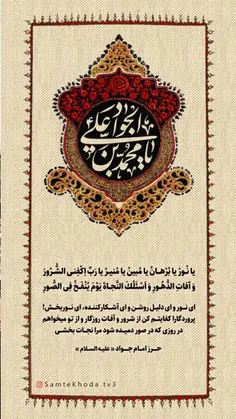 یا محمد بن علی الجواد
یا نُورُ یا بُرْهانُ یا مُبینُ یا مُنیرُ یا رَبِّ اکْفِنِی الشُّرُورَ
وَ آفاتِ الدُّهُورِ وَ اَسْئَلُکَ النَّجاةَ یَوْمَ یُنْفَخُ فِی الصُّورِ
ای نور و ای دلیل روشن و ای آشکارکننده، ای نوربخش!
پروردگارا کفایتم کن از شرور و آفات روزگار و از تو میخواهم
در روزی که در صور دمیده شود مرا نجات بخشی
حرز امام جواد «علیه السلام»
SamteKhoda.tv3